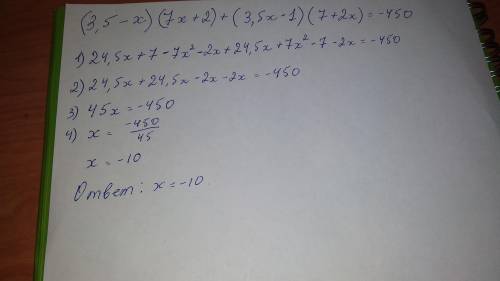 (3,5-x)(7x+2)+(3,5x-1)(7+2x)=-450
1) 24,5x+7-7x²-2x+24,5x+7x²-7-2x=-450
2) 24,5x+24,5x-2x-2x=-450
3) 45x=-450
4) x= -450/45
x=-10
Ответ: x=-10